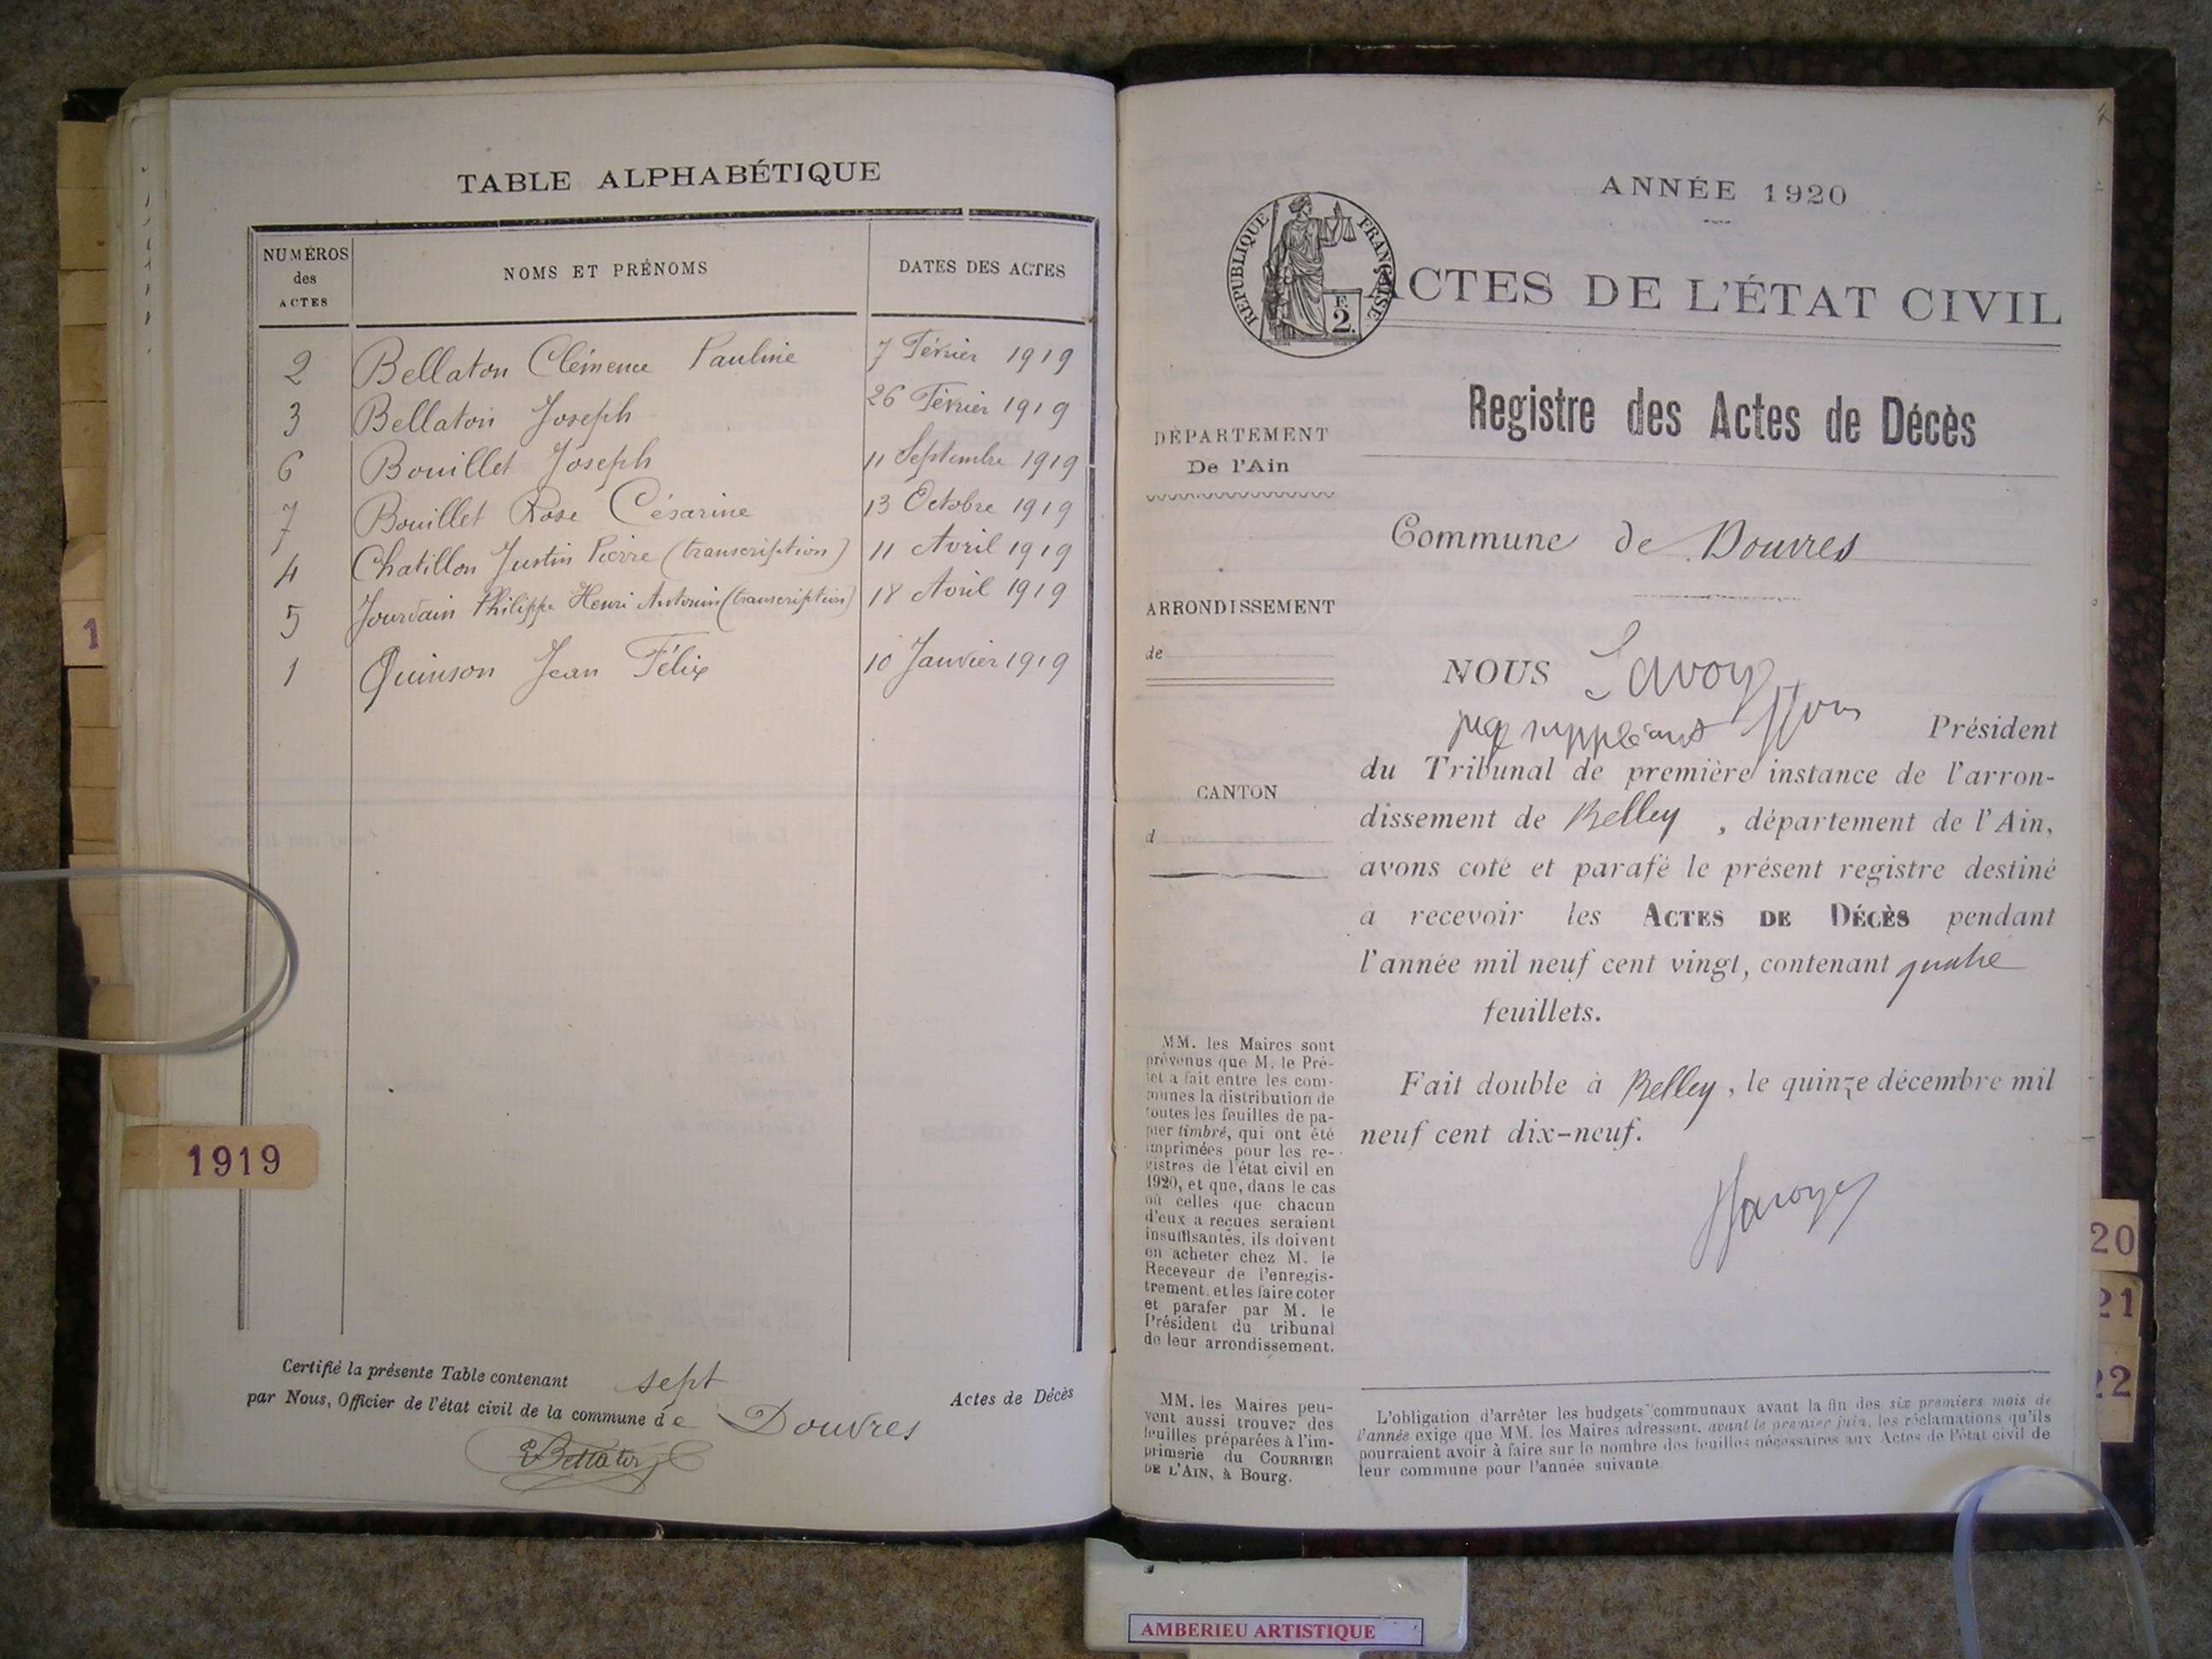 TABLE ALPHABÉTIQUE
NUMÉROS
des
ACTES
NOMS ET PRÉNOMS
DATES DES ACTES
2 Bellaton Clémence Pauline 7 Février 1919
3 Bellaton Joseph 26 Février 1919
6 Bouillet Joseph 11 Septembre 1919
7 Bouillet Rose Césarine 13 Octobre 1919
4 Chatillon Justin Pierre (transcription) 11 Avril 1919
5 Jourdain Philippe Henri Antonin (transcription) 18 Avril 1919
1 Quinson Jean Félix 10 Janvier 1919
1
1919
Certifié la présente Table contenant sept Actes de Décès
par Nous, Officier de l'état civil de la commune de Douvres
Bellaton
ANNÉE 1920
RÉPUBLIQUE FRANÇAISE
F.
2.
ACTES DE L'ÉTAT CIVIL
Registre des Actes de Décès
DÉPARTEMENT
De l'Ain
Commune de Douvres
ARRONDISSEMENT
de
CANTON
d
NOUS Savoye
juge suppléant Président
du Tribunal de première instance de l'arron-
dissement de Belley, département de l'Ain,
avons coté et parafé le présent registre destiné
à recevoir les ACTES DE DÉCÈS pendant
l'année mil neuf cent vingt, contenant quatre
feuillets.
Fait double à Belley, le quinze décembre mil
neuf cent dix-neuf.
Savoye
MM. les Maires sont
prévenus que M. le Pré-
fet a fait entre les com-
munes la distribution de
toutes les feuilles de pa-
pier timbré, qui ont été
imprimées pour les re-
gistres de l'état civil en
1920, et que, dans le cas
où celles que chacun
d'eux a reçues seraient
insuffisantes, ils doivent
en acheter chez M. le
Receveur de l'enregis-
trement, et les faire coter
et parafer par M. le
Président du tribunal
de leur arrondissement.
MM. les Maires peu-
vent aussi trouver des
feuilles préparées à l'im-
primerie du COURRIER
DE L'AIN, à Bourg.
L'obligation d'arrêter les budgets communaux avant la fin des six premiers mois de
l'année exige que MM. les Maires adressent, avant le premier juin, les réclamations qu'ils
pourraient avoir à faire sur le nombre des feuilles nécessaires aux Actes de l'état civil de
leur commune pour l'année suivante.
20
21
22
AMBERIEU ARTISTIQUE